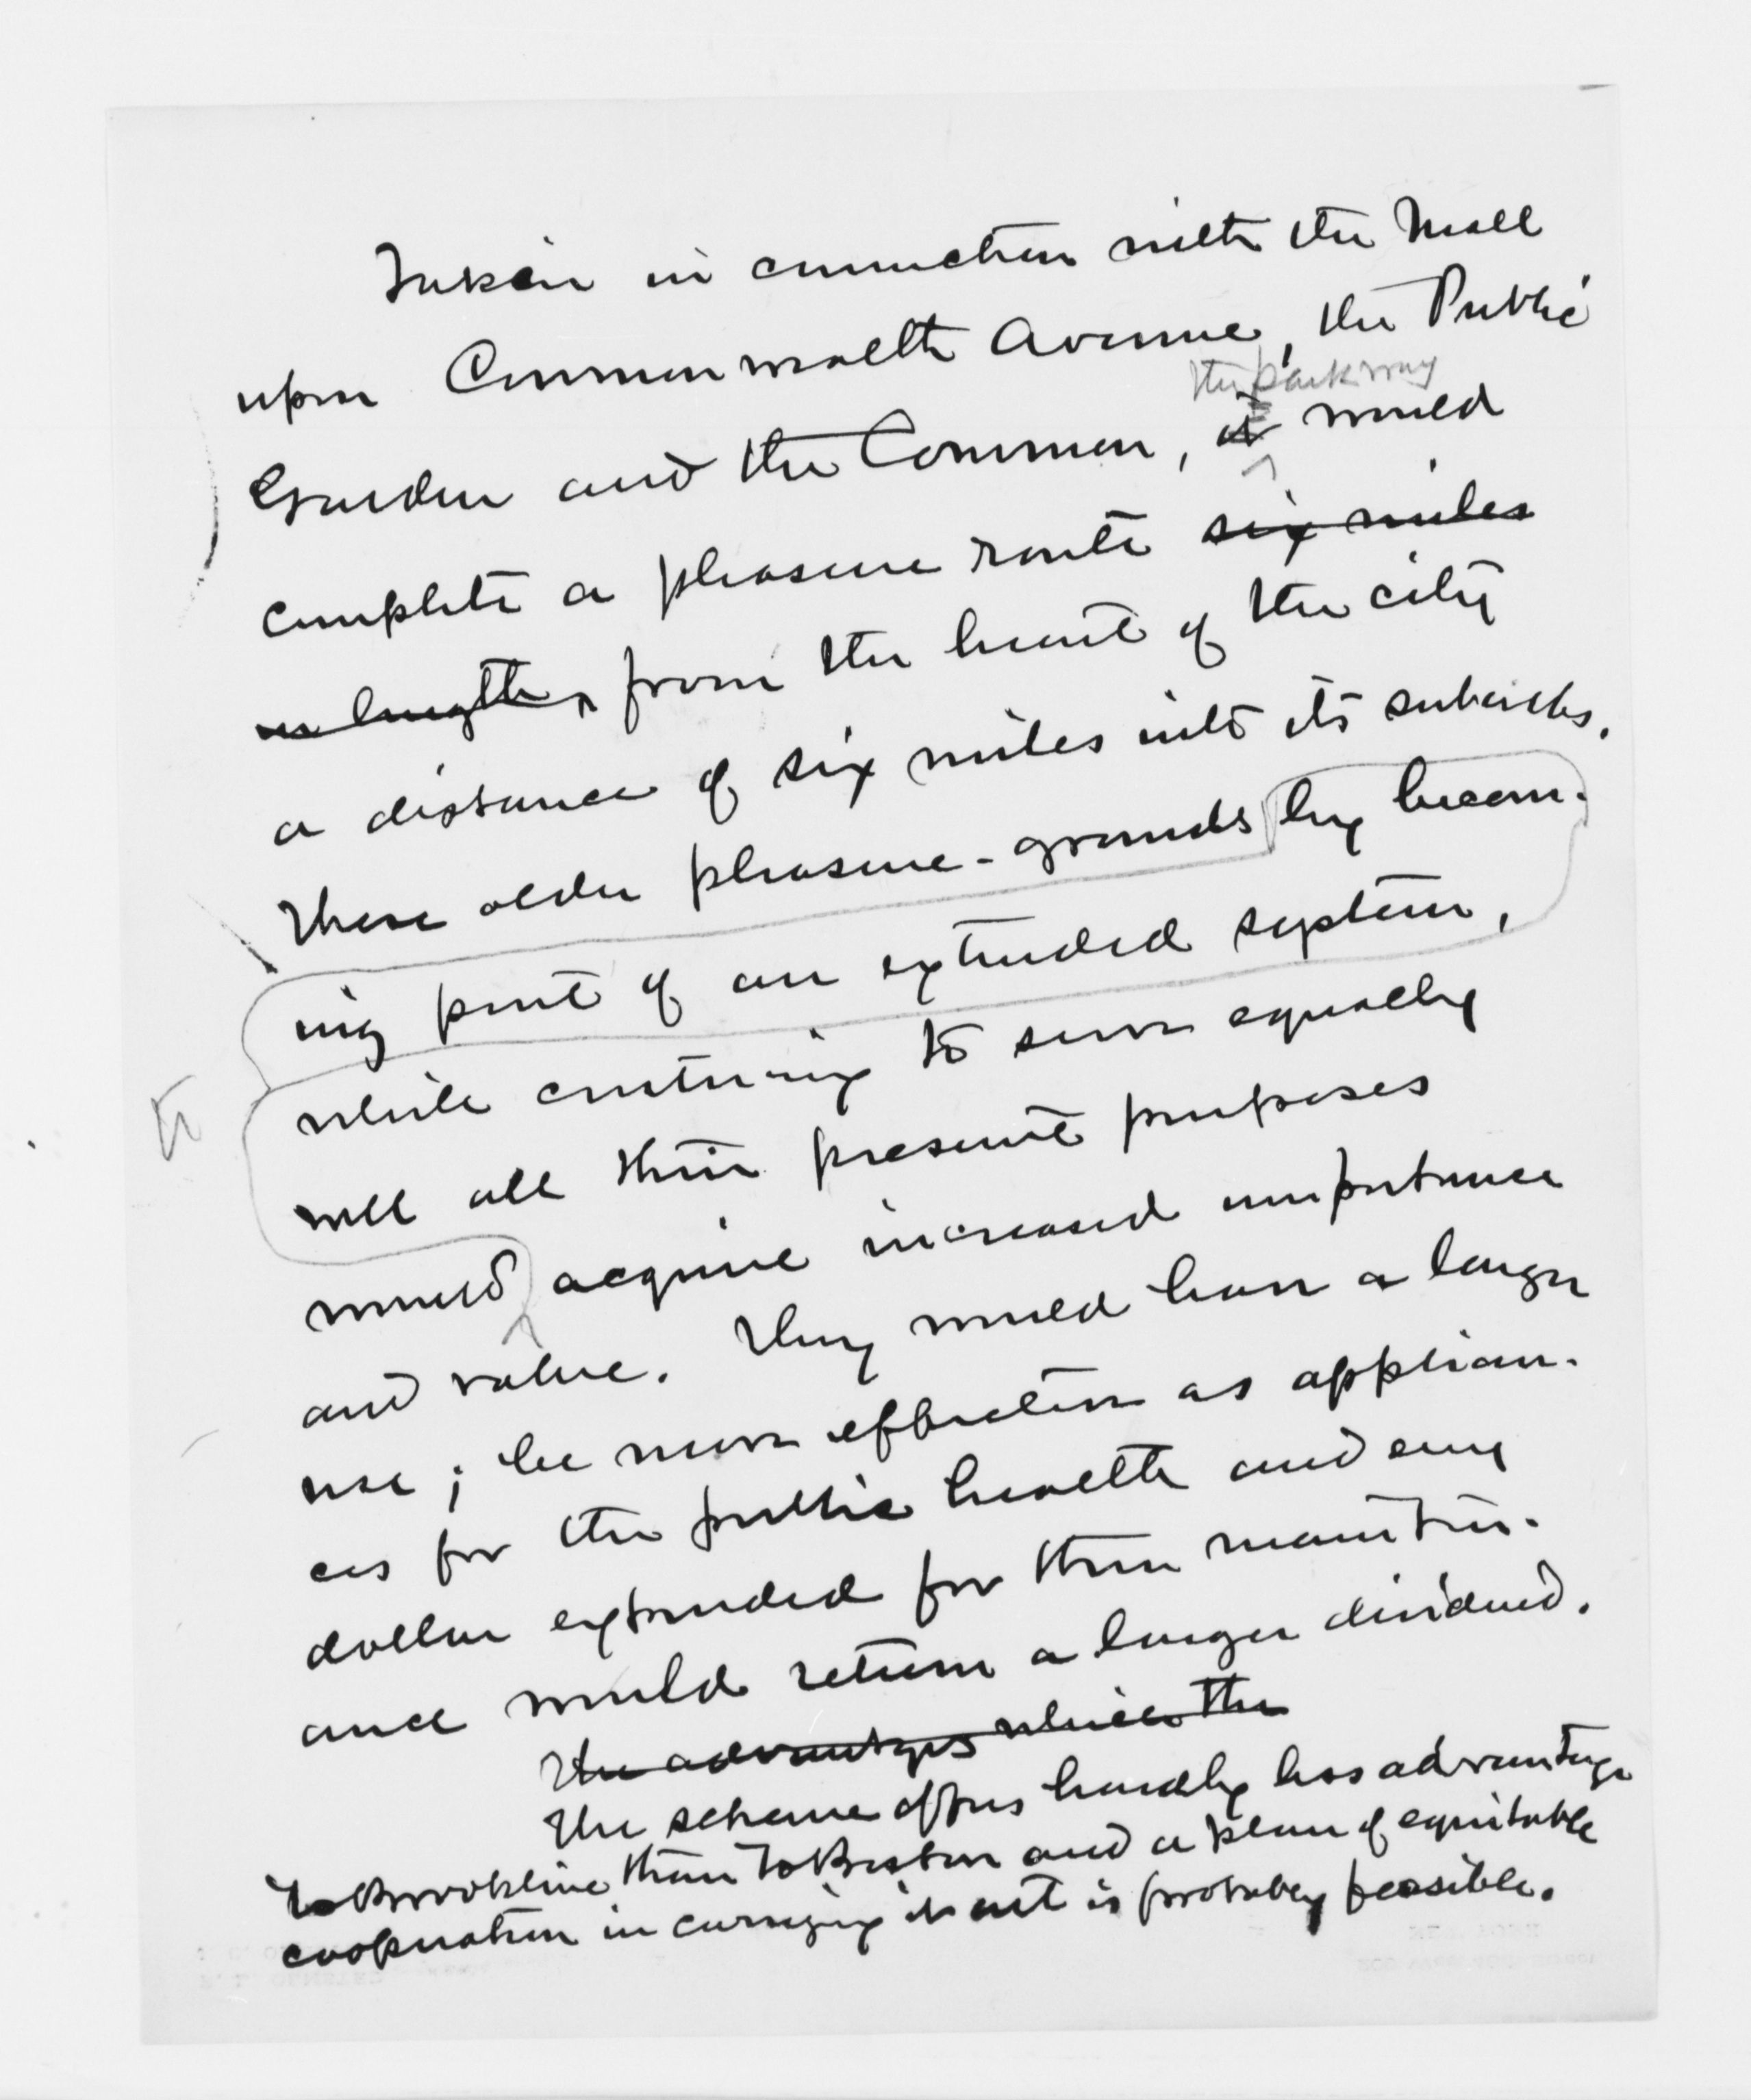 Taken in connection with the Mall
upon Commonwealth Avenue, the Public
the parkway
Garden and the Common, it would
complete a pleasure route six miles
in length, from the heart of the city
a distance of six miles into its suburbs.
These older pleasure-grounds by becom-
ing part of an extended system,
while continuing to serve equally
well all their present purposes
would acquire increased importance
and value. They would have a larger
use; be more effective as applian-
ces for the public health and every
dollar expended for their mainten-
ance would return a larger dividend.
The advantages which the
The scheme offers hardly less advantage
to Brookline than to Boston and a plan of equitable
cooperation in carrying it out is probably feasible.